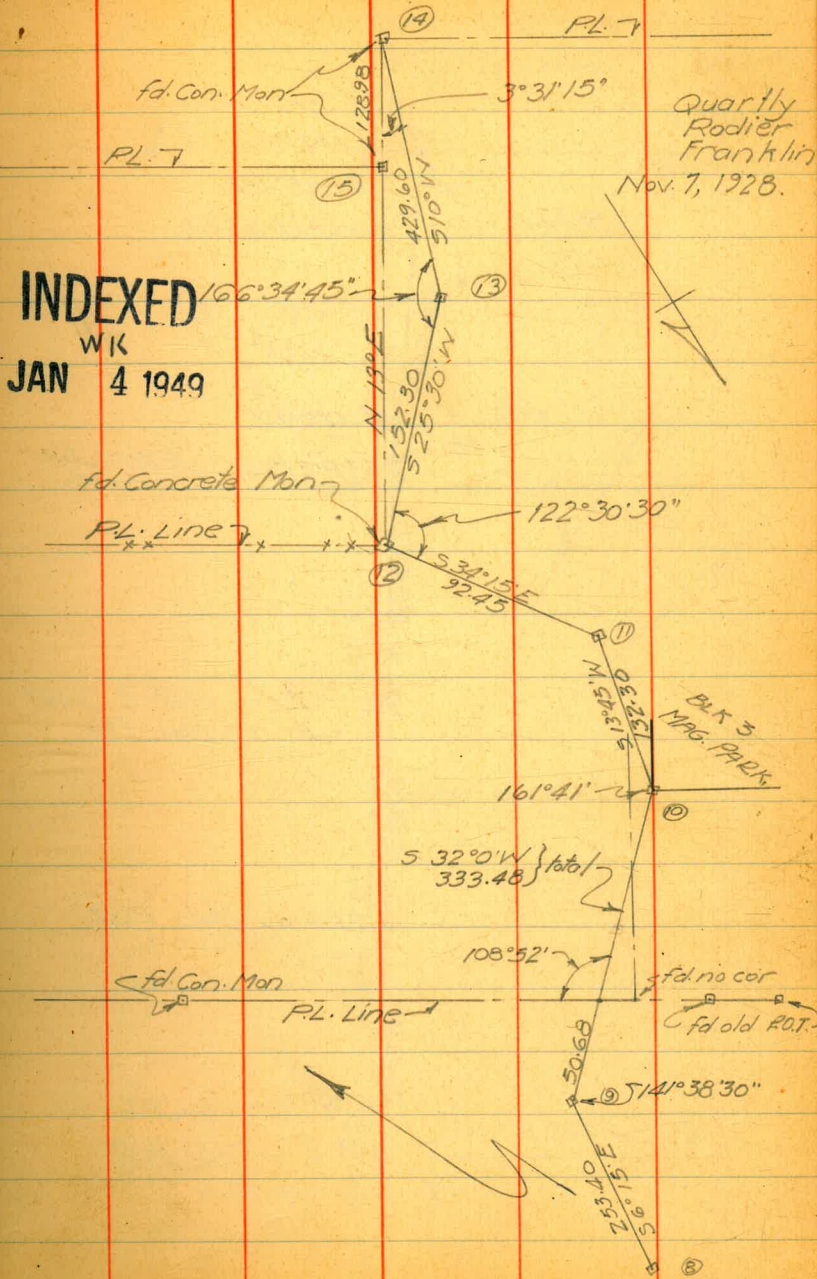 14
P.L.
fd. Con. Mon
128.98
3°31'15"
Quartly
Rodier
Franklin
Nov. 7, 1928.
P.L.
15
429.60
S10°W
INDEXED
WK
JAN 4 1949
166°34'45"
13
N 13°E
152.30
S 25°30'W
fd. Concrete Mon
122°30'30"
P.L. Line
12
S 34°15'E
92.45
11
S13°45'W
132.30
BLK 3
MAG. PARK.
161°41'
10
S 32°0'W } total
333.48
108°52'
fd. Con. Mon
fd. no cor
P.L. Line
fd old P.O.T.
50.68
9
141°38'30"
253.40
S 6°15'E
8